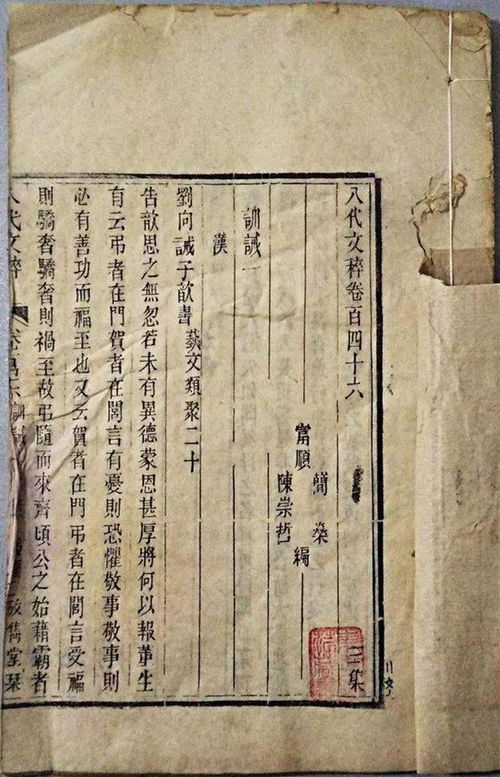 八代文稡卷百四十六
三集
富順
簡燊
陳崇哲
編
訓誡一
漢
劉向誡子歆書 藝文類聚二十
告歆思之無忽若未有異德蒙恩甚厚將何以報董生
有云弔者在門賀者在閭言有憂則恐懼敬事敬事則
必有善功而福至也又云賀者在門弔者在閭言受福
則驕奢驕奢則禍至故弔隨而來齊頃公之始藉霸者
八代文稡
訓誡
堂栞